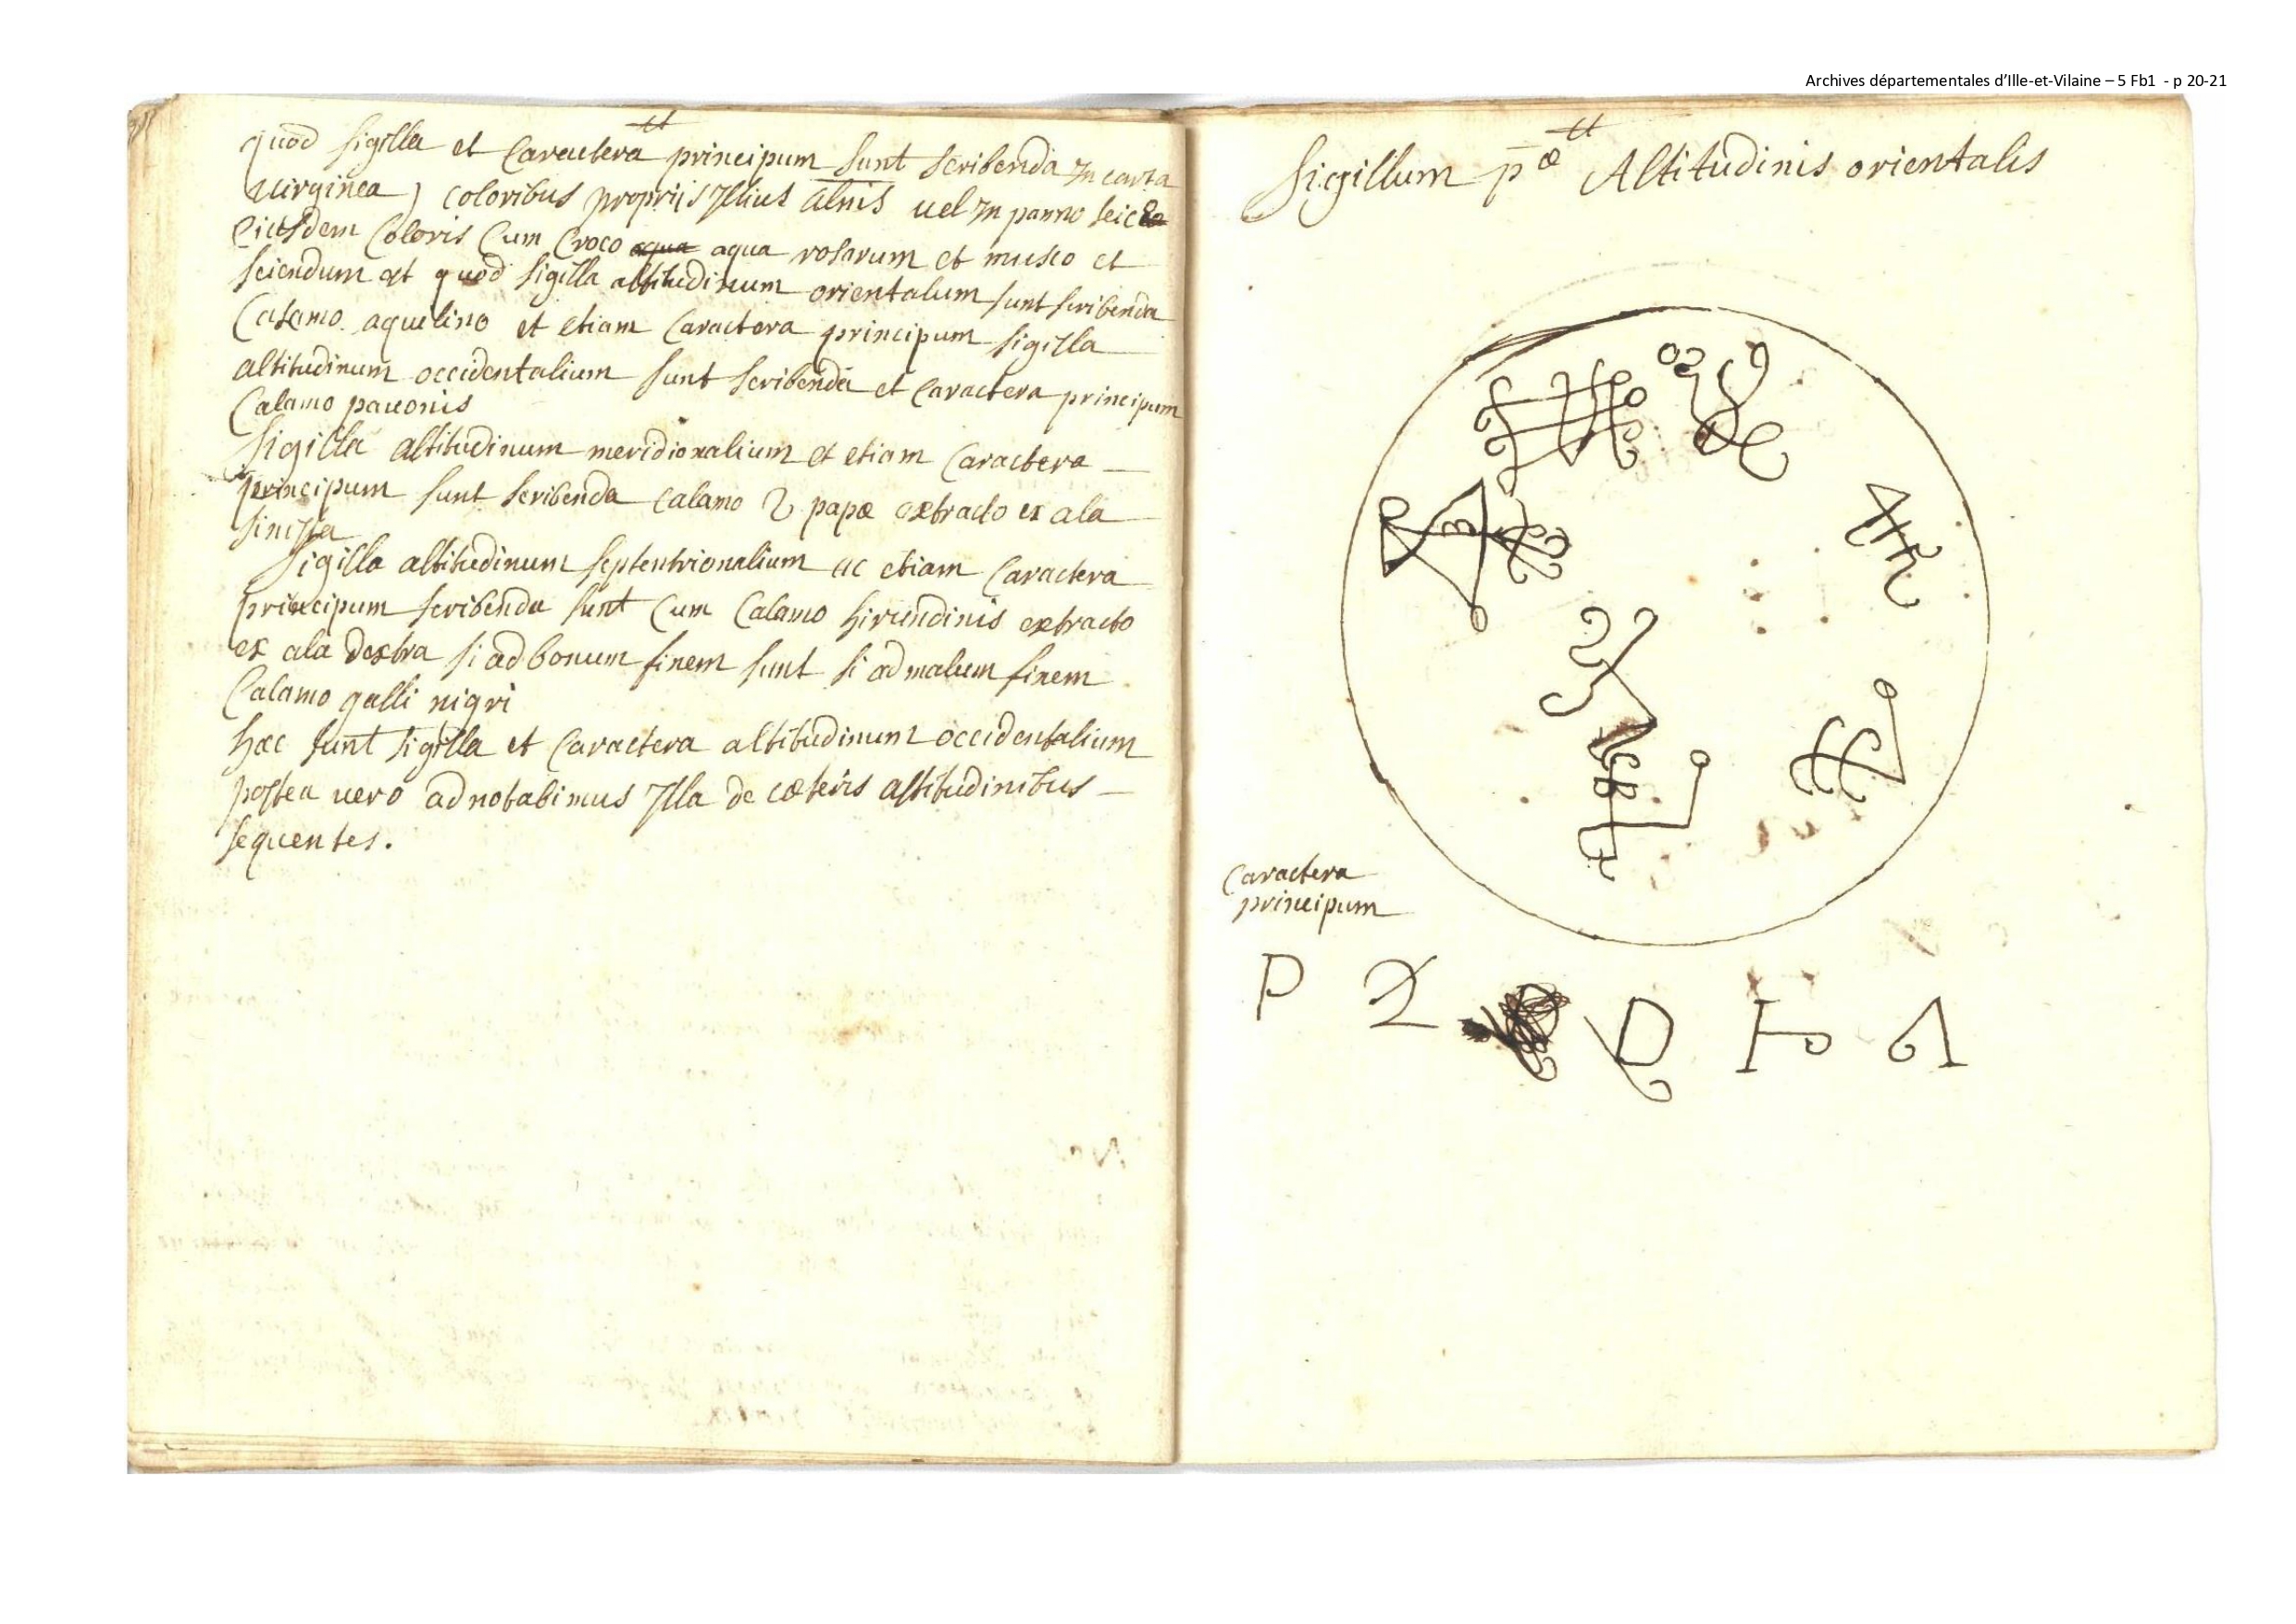 Archives départementales d'Ille-et-Vilaine – 5 Fb1 - p 20-21
quod sigilla et Caractera principum sunt scribenda in carta
virginea coloribus proprijs Illius alnis uel In panno seico
eiusdem Coloris Cum Croco aqua aqua rosarum et musco et
sciendum est quod sigilla altitudinum orientalum sunt scribenda
Calamo aquelino et etiam Caractera principum sigilla
altitudinum occidentalium sunt scribenda et caractera principum
Calamo pauonis
sigilla altitudinum meridionalium et etiam Caractera
principum sunt scribenda calamo papæ extracto ex ala
sinistra
sigilla altitudinum septentrionalium ac etiam Caractera
principum scribenda sunt Cum Calamo hirundinis extracto
ex ala dextra si ad bonum finem sunt si ad malum finem
Calamo galli nigri
hæc sunt sigilla et Caractera altitudinum occidentalium
postea uero adnotabimus Illa de cæteris altitudinibus
sequentes.
Sigillum pæ Altitudinis orientalis
Caractera
principum